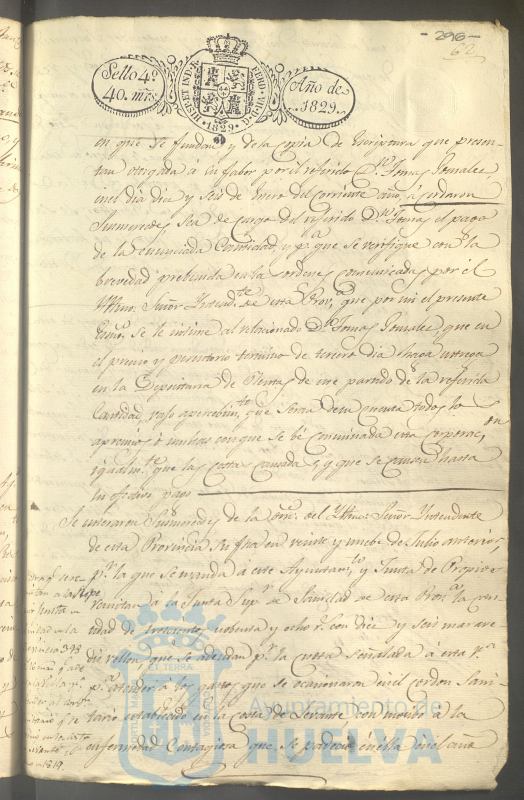 - 296 -
62
Sello 4º
40. mrs.
HISP. ET IND. R.
FERD. VII. D. G.
1829
Año de
1829.
en que se fundan, y de la copia de Escriptura que presen-
tan otorgada a su fabor por el referido Dn. Tomas Gonzalez
en el dia diez y seis de Enero del corriente año, acordaron
Sus mercedes sea de cargo del referido Dn. Tomas el pago
de la enunciada Cantidad, y pa. que se verifique con la
brevedad prebenida en las ordenes comunicadas por el
Yltmo. Señor Intendte. de esta Prova. que por mi el presente
Esno. se le intime al relacionado Dn. Tomas Gonzalez que en
el preciso y perentorio termino de tercero dia haga entrega
en la Depositaria de Rentas de este partido de la referida
Cantidad, vajo apercebimto. que seran de su cuenta todos los
apremios ó multas con que se bé conminada esta corporacion
igualmte. que las costas causadas, y que se causen hasta
su efectivo pago
Se enteraron Sus mercedes de la orn. del Yltmo. Señor Yntendente
de esta Provincia, su fha en veinte y nuebe de Julio anterior,
pr. la que se manda á este Ayuntamto. y Junta de Propios
remitan á la Junta Supr. de Sanidad de esta Prova. la can-
tidad de trescientos nobenta y ocho rs. con diez y seis marave
dis vellon que se adeudan pr. la cuota señalada á esta Va.
pa. atender á los gastos que se ocasionaron en el cordon Sani
tario establecido en la Costa de Levante con motivo á la
enfermedad Contagiosa que se padecio en ella en el año
Ayuntamiento de
HUELVA